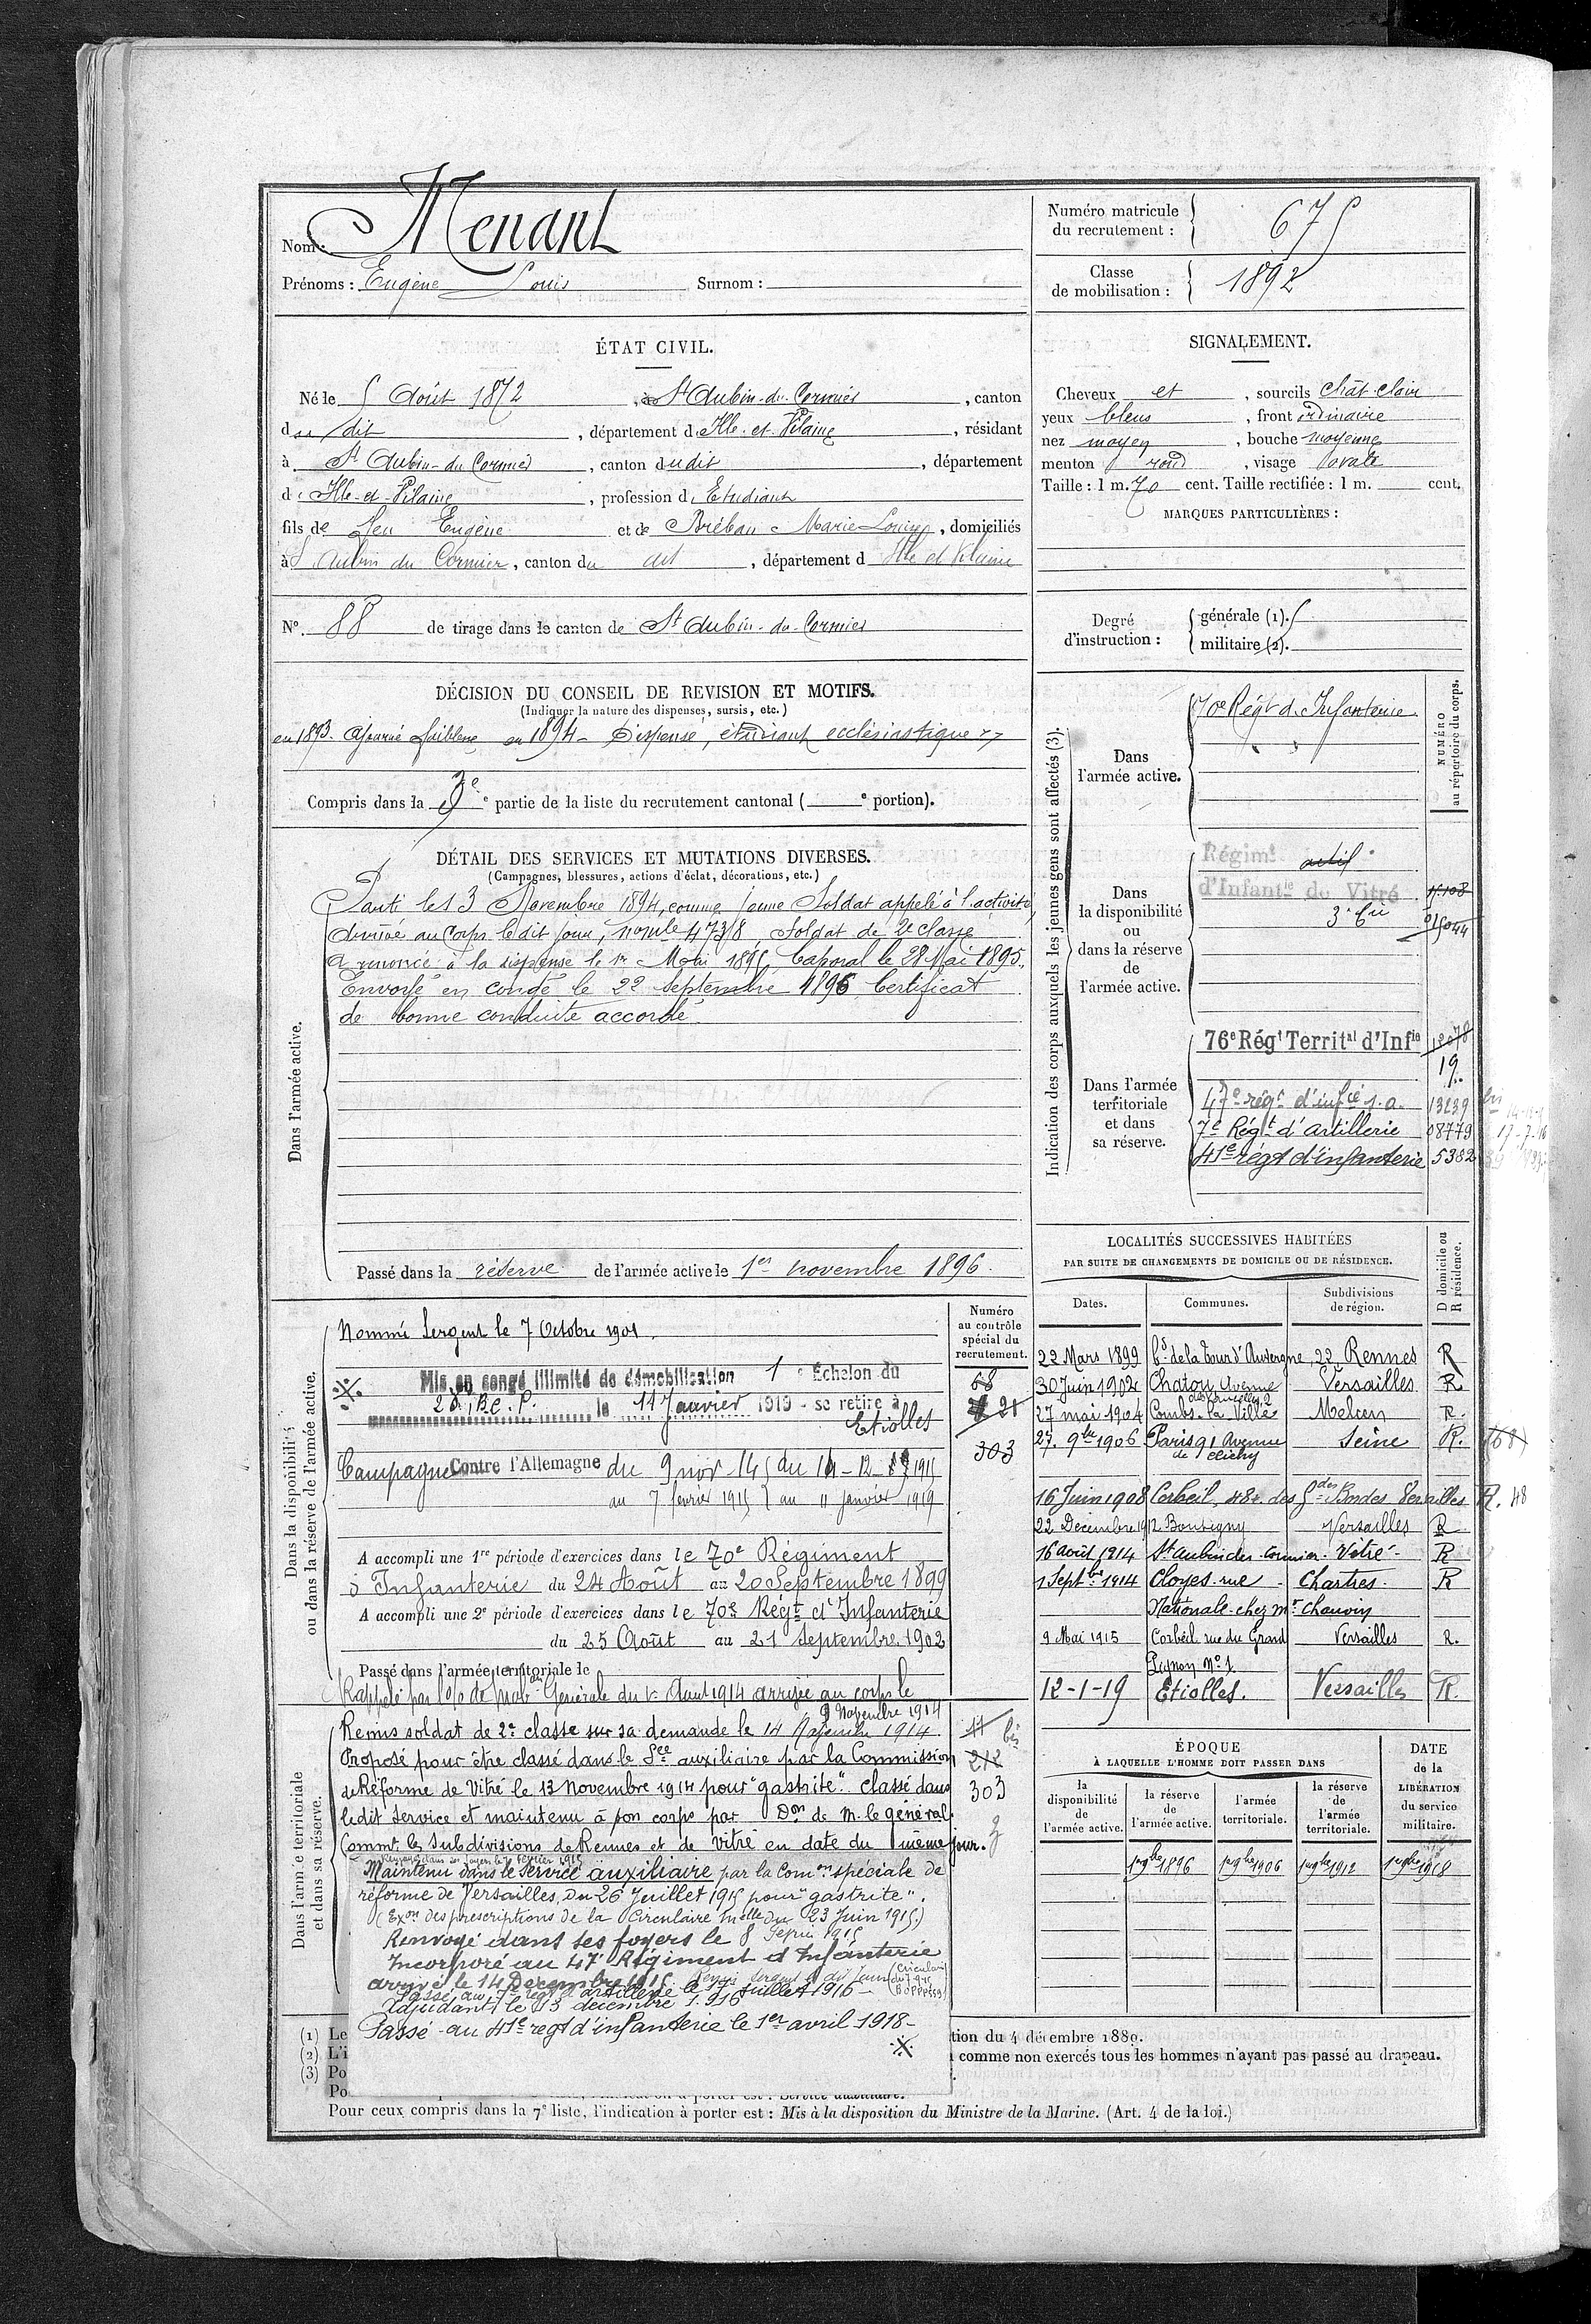 Nom : Menant
Prénoms : Eugène Louis Surnom :
Numéro matricule du recrutement : 675
Classe de mobilisation : 1892
ÉTAT CIVIL.
Né le 5 Août 1872, à St Aubin-du-Cormier, canton
du dit, département d'Ille-et-Vilaine, résidant
à St Aubin-du Cormier, canton dudit, département
d'Ille-et-Vilaine, profession d'Etudiant
fils de feu Eugène et de Bréban Marie Louise, domiciliés
à St Aubin du Cormier, canton du dit, département d Ille et Vilaine
N° 88 de tirage dans le canton de St Aubin-du-Cormier
SIGNALEMENT.
Cheveux et, sourcils chât. clair
yeux bleus, front ordinaire
nez moyen, bouche moyenne
menton rond, visage ovale
Taille : 1 m. 70 cent. Taille rectifiée : 1 m. cent.
MARQUES PARTICULIÈRES :
Degré d'instruction :
générale (1). 5
militaire (2).
DÉCISION DU CONSEIL DE REVISION ET MOTIFS.
(Indiquer la nature des dispenses, sursis, etc.)
en 1893 ajourné faiblesse en 1894 - Dispensé, étudiant ecclésiastique
Compris dans la 3e e partie de la liste du recrutement cantonal ( e portion).
DÉTAIL DES SERVICES ET MUTATIONS DIVERSES.
(Campagnes, blessures, actions d'éclat, décorations, etc.)
Dans l'armée active.
Parti le 13 Novembre 1894, comme jeune Soldat appelé à l'activité,
Arrivé au Corps le dit jour, n° mle 4738 Soldat de 2e classe
A renoncé à la dispense le 1er Mai 1895, Caporal le 28 Mai 1895.
Envoyé en congé le 22 Septembre 1896 Certificat
de bonne conduite accordé.
Passé dans la réserve de l'armée active le 1er novembre 1896.
Indication des corps auxquels les jeunes gens sont affectés (3).
NUMÉRO au répertoire du corps.
Dans l'armée active.
70e Régt d'Infanterie
Dans la disponibilité ou dans la réserve de l'armée active.
Régimt actif
d'Infantie de Vitré
Dans l'armée territoriale et dans sa réserve.
76e Régt Territal d'Infie 12078
19
47e régt d'infie s.a. 13239
7e Régt d'artillerie 08779 17-7-16
41e régt d'infanterie 5382
LOCALITÉS SUCCESSIVES HABITÉES
PAR SUITE DE CHANGEMENTS DE DOMICILE OU DE RÉSIDENCE.
Dates. Communes. Subdivisions de région. D domicile ou R résidence.
22 Mars 1899 Bd de la Tour d'Auvergne, 22 Rennes R
30 Juin 1902 Chatou Avenue Versailles R
27 mai 1904 Combs-la-Ville Melun R.
27 9bre 1906 Paris 91 Avenue de Clichy Seine R. (68)
16 Juin 1908 Corbeil, 48 r. des Gdes Bordes Versailles R. 48
22 Décembre 1912 Boussigny Versailles R
16 août 1914 St Aubin du Cormier Vitré R
1 Septbre 1914 Cloyes rue Chartres R
Nationale chez Mr Chauvin
9 Mai 1915 Corbeil rue du Grand Versailles R.
Pignon N° 1
12-1-19 Etiolles. Versailles R.
Dans la disponibilité ou dans la réserve de l'armée active.
Numéro au contrôle spécial du recrutement.
68
21
303
Nommé Sergent le 7 Octobre 1901.
Mis en congé illimité de démobilisation 1e Échelon du
le 11 Janvier 1919 - se retire à
Etiolles
Campagne Contre l'Allemagne du 9 nov 14 du 14-12-1915
au 7 février 1915 au 11 janvier 1919
A accompli une 1re période d'exercices dans le 70e Régiment
d'Infanterie du 24 Août au 20 Septembre 1899
A accompli une 2e période d'exercices dans le 70e Régt d'Infanterie
du 25 Août au 21 Septembre 1902
Passé dans l'armée territoriale le
Rappelé par Don de Mobon Générale du 1er Août 1914 arrivé au corps le
9 Novembre 1914
Dans l'armée territoriale et dans sa réserve.
Remis soldat de 2e classe sur sa demande le 14 Novembre 1914. 11 bis
Proposé pour être classé dans le Sce auxiliaire par la Commission 212
de Réforme de Vitré le 13 Novembre 1914 pour "gastrite". Classé dans 303
ledit service et maintenu à son corps par Don de M. le général
Commt les Subdivisions de Rennes et de Vitré en date du même jour.
Renvoyé dans ses foyers le 7 février 1915
Maintenu dans le service auxiliaire par la Comon spéciale de
réforme de Versailles, du 26 Juillet 1915 pour "gastrite".
(Exon des prescriptions de la Circulaire mielle du 23 Juin 1915.)
Renvoyé dans ses foyers le 8
Incorporé au 47e Régiment d'Infanterie
arrivé le 14 Décembre 1915.
Passé au 7e régt d'artillerie le 17 juillet 1916 -
Adjudant le 13 décembre 1916
Passé au 41e regt d'infanterie le 1er avril 1918 -
ÉPOQUE
À LAQUELLE L'HOMME DOIT PASSER DANS
la disponibilité de l'armée active. la réserve de l'armée active. l'armée territoriale. la réserve de l'armée territoriale.
DATE de la LIBÉRATION du service militaire.
1er 9bre 1896 1er 9bre 1906 1er 9bre 1912 1er 9bre 1918
(1) Le
(2) L'i
(3) Po
Po
tion du 4 décembre 1889.
comme non exercés tous les hommes n'ayant pas passé au drapeau.
Pour ceux compris dans la 7e liste, l'indication à porter est : Mis à la disposition du Ministre de la Marine. (Art. 4 de la loi.)